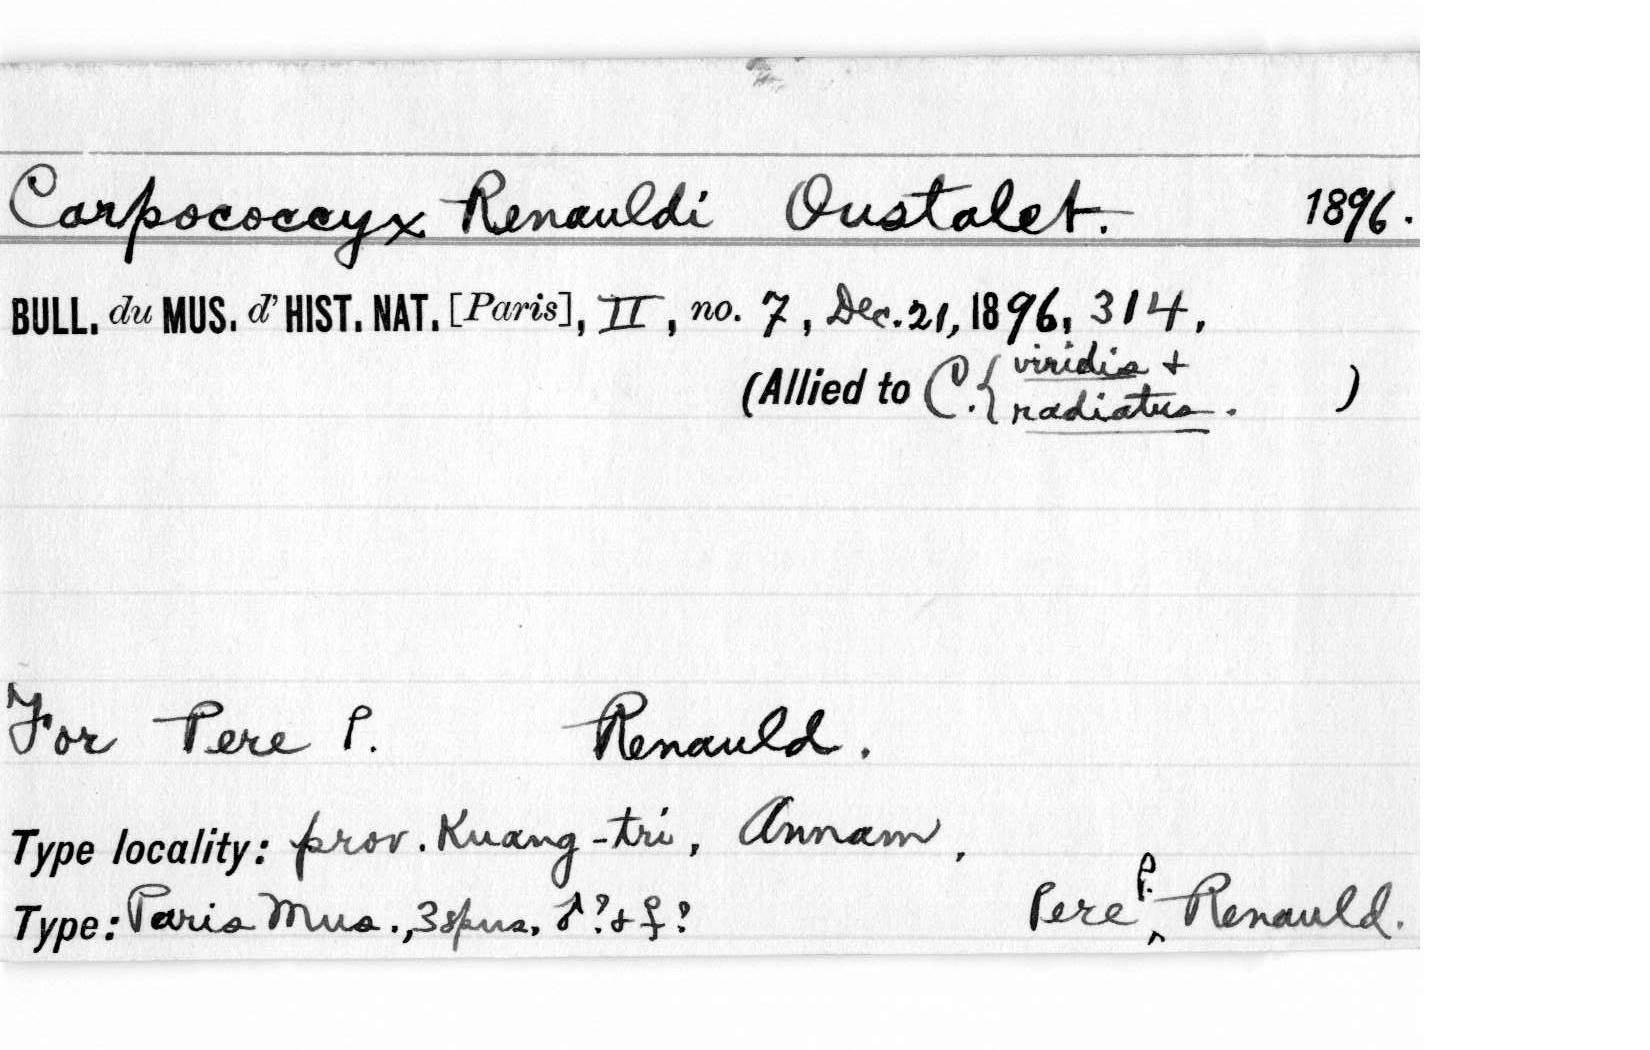 Carpococcyx Renauldi Oustalet. 1896.
BULL. du MUS. d' HIST. NAT. [Paris], II, no. 7, Dec. 21, 1896, 314,
(Allied to C. { viridis +
radiatus. )
For Pere P. Renauld.
Type locality: prov. Kuang-tri, Annam,
Type: Paris Mus., 3 spns, ♂? + ♀? Pere P. Renauld.